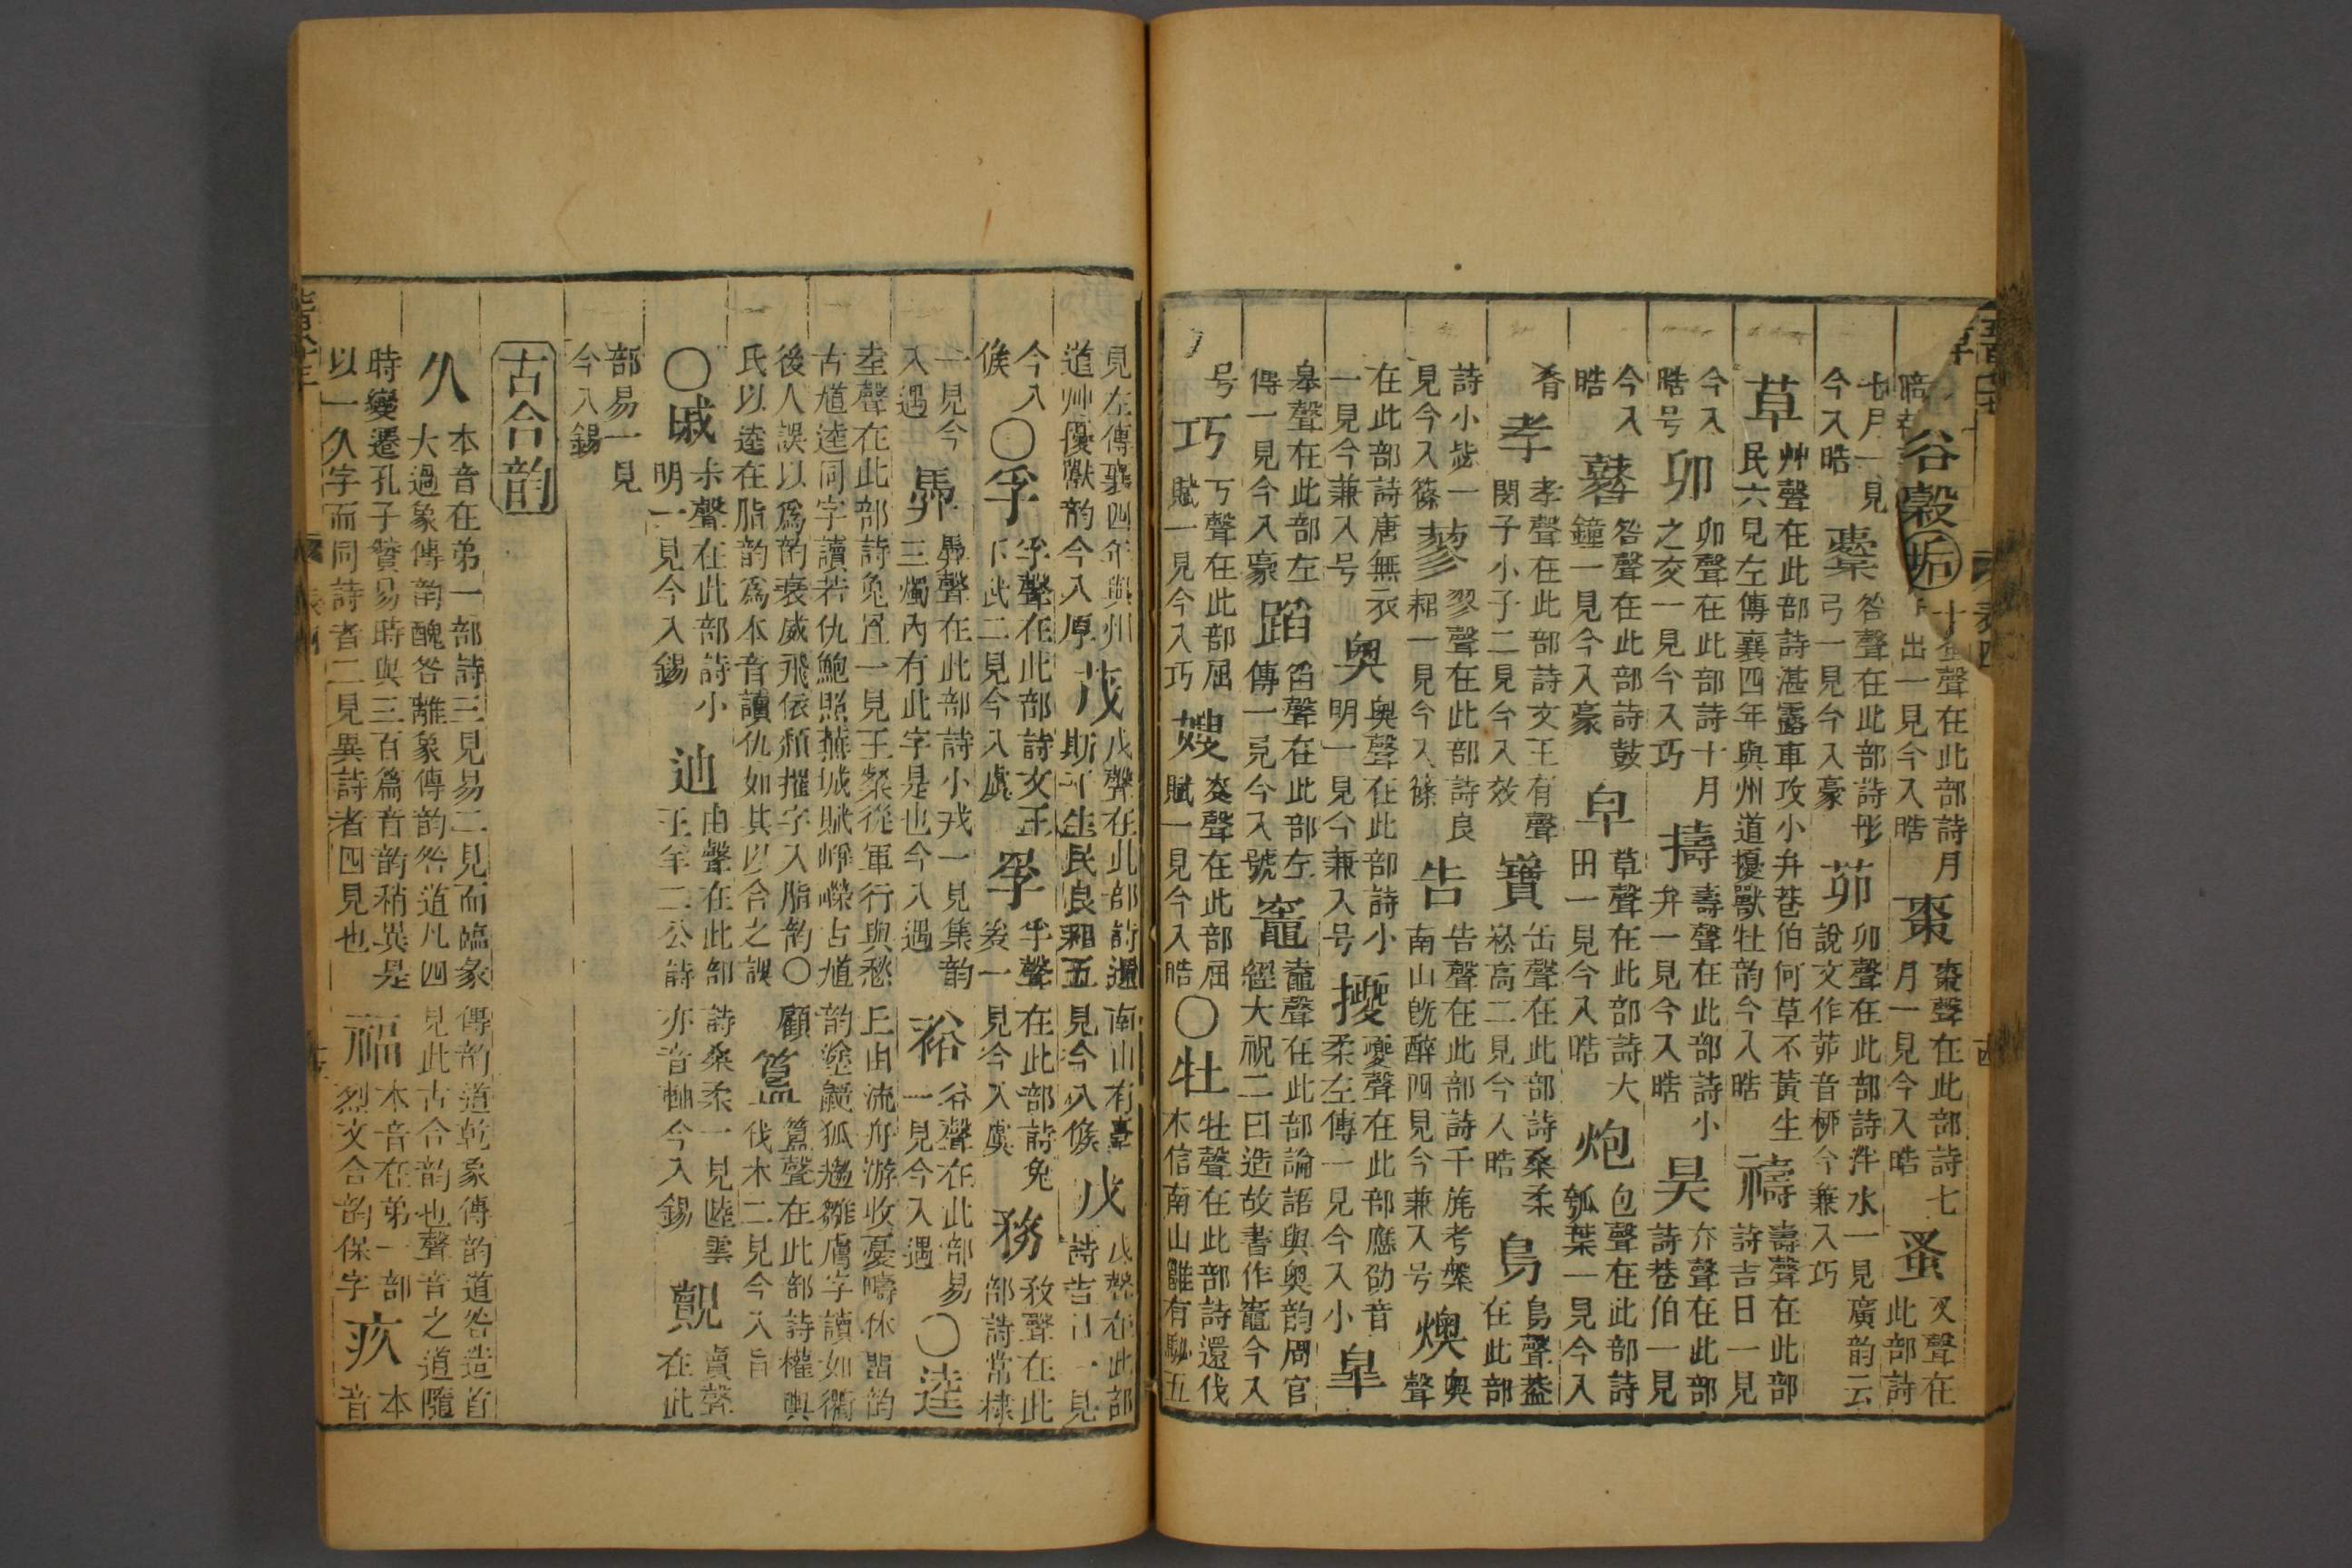 聲在此部詩月
出一見今入晧
棗 棗聲在此部詩七
月一見今入晧
蚤 㕚聲在
此部詩
七月一見
今入晧
櫜 咎聲在此部詩彤
弓一見今入豪
茆 卯聲在此部詩泮水一見廣韵云
說文作茆音桺今兼入巧
草 艸聲在此部詩湛露車攻小弁巷伯何草不黃生
民六見左傳襄四年與州道擾獸牡韵今入晧
禱 壽聲在此部
詩吉日一見
今入
晧号
卯 卯聲在此部詩十月
之交一見今入巧
擣 壽聲在此部詩小
弁一見今入晧
昊 夰聲在此部
詩巷伯一見
今入
晧
鼛 咎聲在此部詩鼓
鐘一見今入豪
皁 草聲在此部詩大
田一見今入晧
炮 包聲在此部詩
瓠葉一見今入
肴
孝 孝聲在此部詩文王有聲
閔子小子二見今入效
寶 缶聲在此部詩桑柔
崧高二見今入晧
鳥 鳥聲葢
在此部
詩小毖一
見今入篠
蓼 翏聲在此部詩良
耜一見今入篠
告 告聲在此部詩干旄考槃
南山旣醉四見今兼入号
燠 奥
聲
在此部詩唐無衣
一見今兼入号
奥 奥聲在此部詩小
明一見今兼入号
擾 夒聲在此部應劭音
柔左傳一見今入小
皐
皋聲在此部左
傳一見今入豪
蹈 舀聲在此部左
傳一見今入號
竈 鼀聲在此部論語與奥韵周官
經大祝二曰造故書作竈今入
号
巧 丂聲在此部屈
賦一見今入巧
嫂 叜聲在此部屈
賦一見今入晧
〇牡 牡聲在此部詩還伐
木信南山雝有駜五
見左傳襄四年與州
道艸擾獸韵今入厚
茂 戊聲在此部詩還南山有臺
斯干生民良耜五見今入候
戊 戊聲在此部
詩吉日一見
今入
候
〇孚 孚聲在此部詩文王
下武二見今入虞
罦 孚聲在此部詩兔
爰一見今入虞
務 敄聲在此
部詩常棣
一見今
入遇
馵 馵聲在此部詩小戎一見集韵
三燭內有此字是也今入遇
裕 谷聲在此部易
一見今入遇
〇逵
坴聲在此部詩兔罝一見王粲從軍行與愁上由流舟游收憂疇休畱韵
古馗逵同字讀若仇鮑照蕪城賦崢嶸古馗韵塗 狐 雛膚字讀如衢
後人誤以爲韵衰威飛依頹摧字入脂韵〇顧
氏以逵在脂韵爲本音讀仇如其以合之誤
簋 簋聲在此部詩權輿
伐木二見今入旨
〇戚 尗聲在此部詩小
明一見今入錫
迪 由聲在此部詩桑柔一見陸雲
王羊二公詩亦音軸今入錫
覿 賣聲
在此
部易一見
今入錫
古合韵
久 本音在弟一部詩三見易二見而臨象傳韵道乾象傳韵道咎造首
大過象傳韵醜咎離象傳韵咎道凡四見此古合韵也聲音之道隨
時變遷孔子贊易時與三百篇音韵稍異是
以一久字而同詩者二見異詩者四見也
福 本音在弟一部
烈文合韵保字
疚 本
音